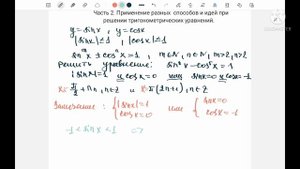 Часть 2. Применение разных способов и идей при
решении тригонометрических уравнений.
y=sinx, y=cosx
|sinx|≤1, |cosx|≤1
sinᵐx ± cosⁿx=1, m∈N, n∈N, m>2, n>2
Решить уравнение: sin⁴x-cos⁵x=1
|sinx|=1 и cosx=0 или sinx=0 и cosx=-1
x=π/2+πn, n∈Z и x=π(2n+1), n∈Z
Замечание: { |sinx|=1 cosx=0 или { sinx=0 cosx=-1
-1<sinx<1